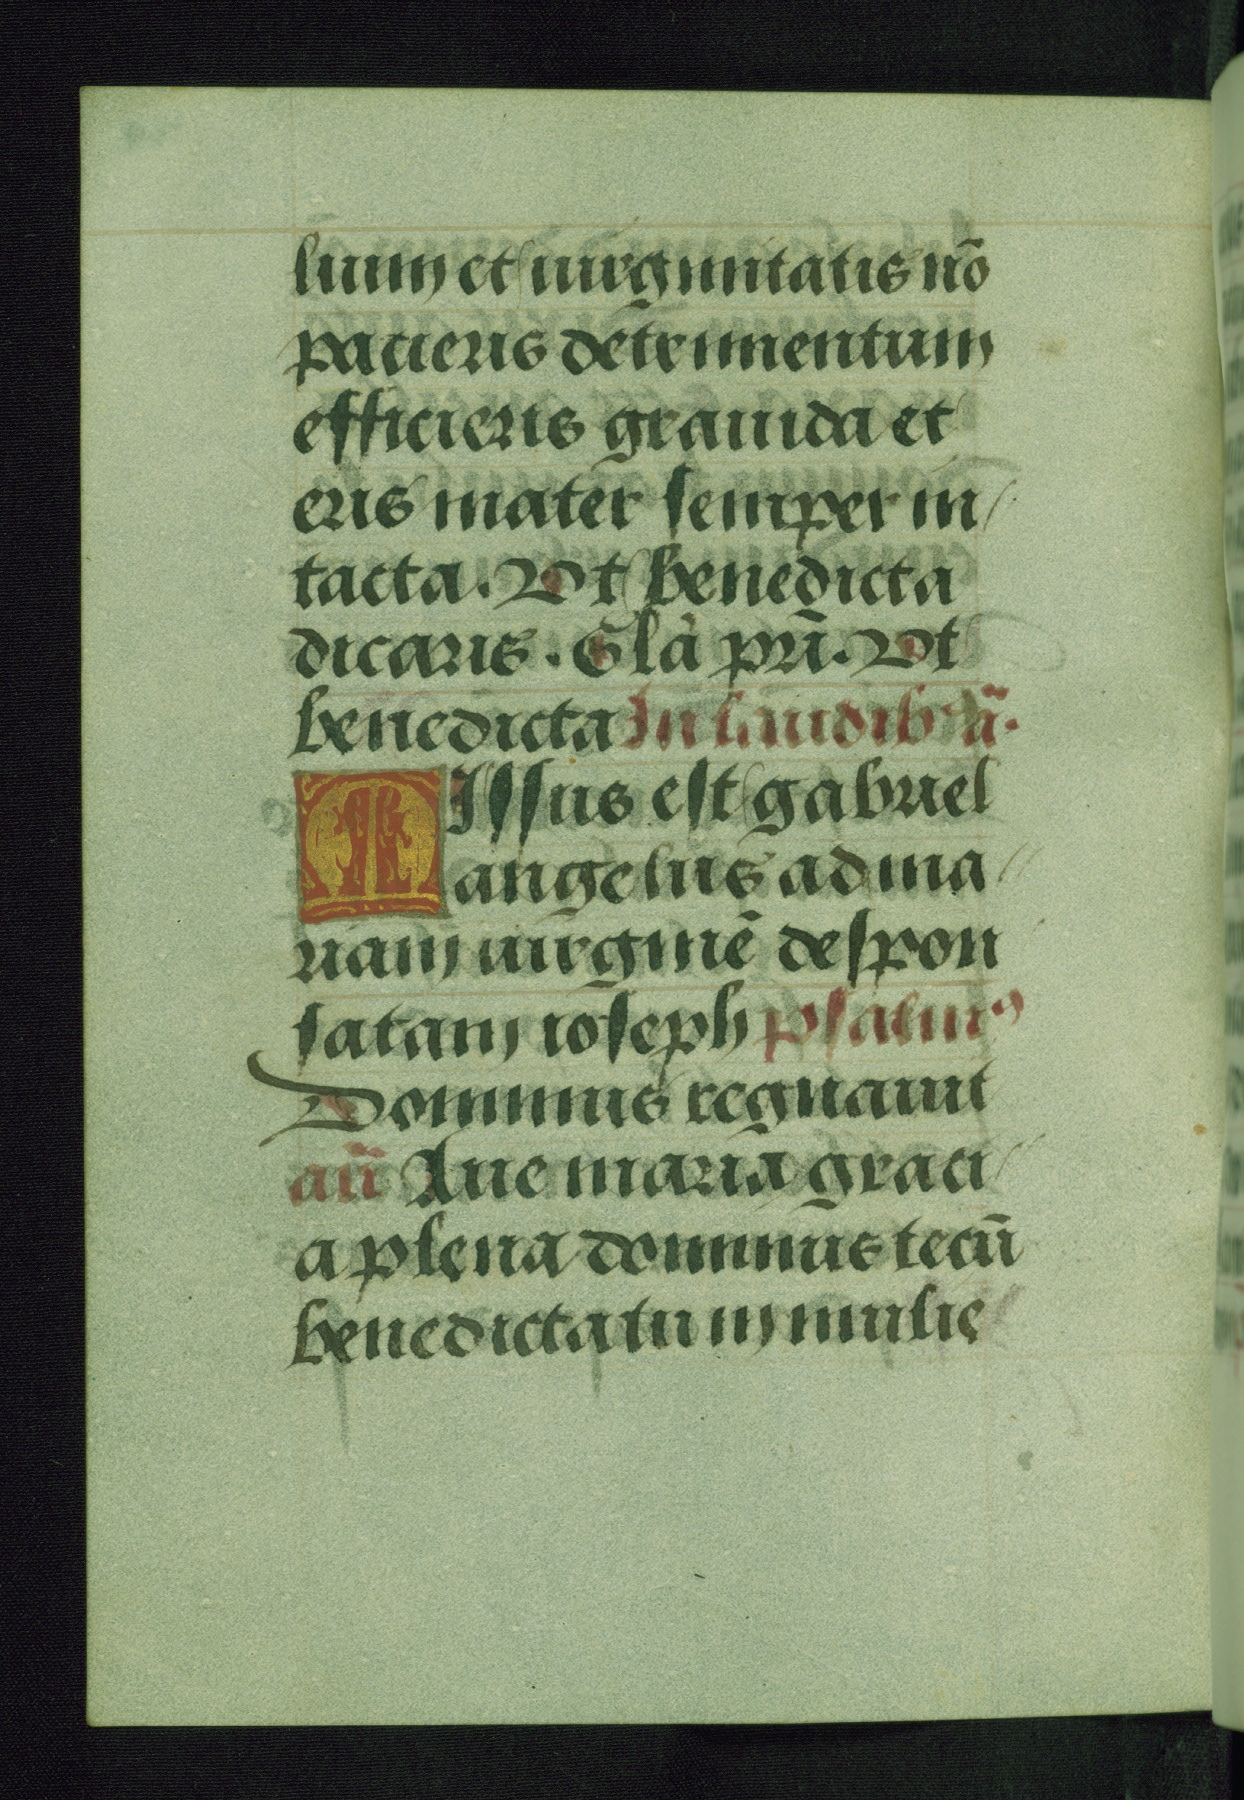 lium et uirginitatis nō
pacieris detrimentum
efficieris grauida et
eris mater semper in/
tacta. Vt benedicta
dicaris. Glā pri. Vt
benedicta In laudib ā.
Missus est gabriel
angelus ad ma
riam uirginē despon
satam ioseph psalmꝰ
Dominus regnauit
añ Aue maria graci/
a plena dominus tecū
benedicta tu in mulie